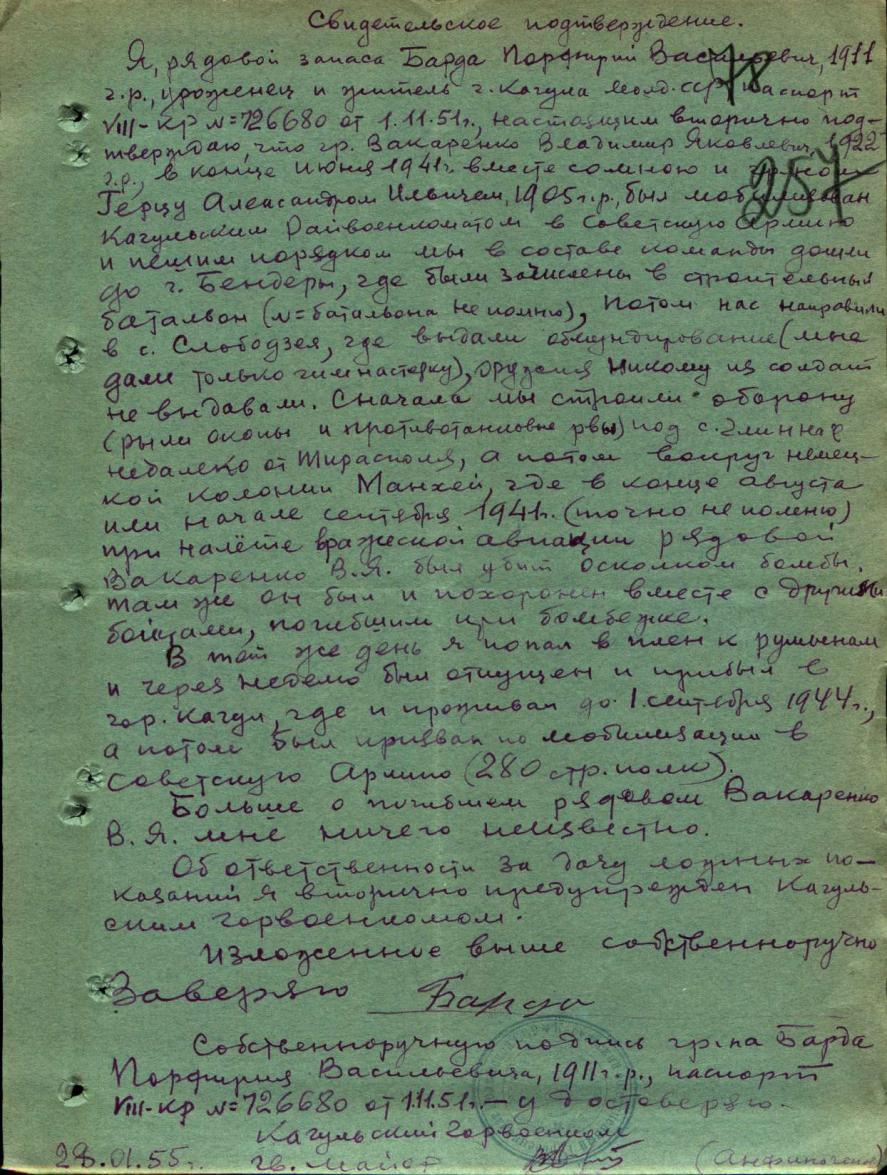 Свидетельское подтверждение.
78
Я, рядовой запаса Барда Порфирий Васильевич, 1911
г.р., уроженец и житель г. Кагула Молд. ССР, паспорт
VIII-КР N=726680 от 1.11.51г., настоящим вторично под-
тверждаю, что гр. Вакаренко Владимир Яковлевич, 1922
г.р., в конце июня 1941г. вместе со мною и
257
Герцу Александром Ильичем, 1905 г.р., был мобилизован
Кагульским Райвоенкоматом в Советскую Армию
и пешим порядком мы в составе команды дошли
до г. Бендеры, где были зачислены в строительный
батальон (N= батальона не помню), потом нас направили
в с. Слободзея, где выдали обмундирование (мне
дали только гимнастерку), оружия никому из солдат
не выдавали. Сначала мы строили оборону
(рыли окопы и противотанковые рвы) под с. Глинное
недалеко от Тирасполя, а потом вокруг немец-
кой колонии Манхей, где в конце августа
или начале сентября 1941г. (точно не помню)
при налёте вражеской авиации рядовой
Вакаренко В.Я. был убит осколком бомбы,
там же он был и похоронен вместе с другими
бойцами, погибшим при бомбежке.
В тот же день я попал в плен к румынам
и через неделю был отпущен и прибыл в
гор. Кагул, где и проживал до 1 сентября 1944г.,
а потом был призван по мобилизации в
Советскую Армию (280 стр. полк).
Больше о погибшем рядовом Вакаренко
В.Я. мне ничего неизвестно.
Об ответственности за дачу ложных по-
казаний я вторично предупрежден Кагуль-
ским горвоенкомом.
Изложенное выше собственноручно
Заверяю Барда
Собственноручную подпись гр-на Барда
Порфирия Васильевича, 1911 г.р., паспорт
VIII-КР N=726680 от 1.11.51г. — удостоверяю.
Кагульский Горвоенком
28.01.55г. гв. майор